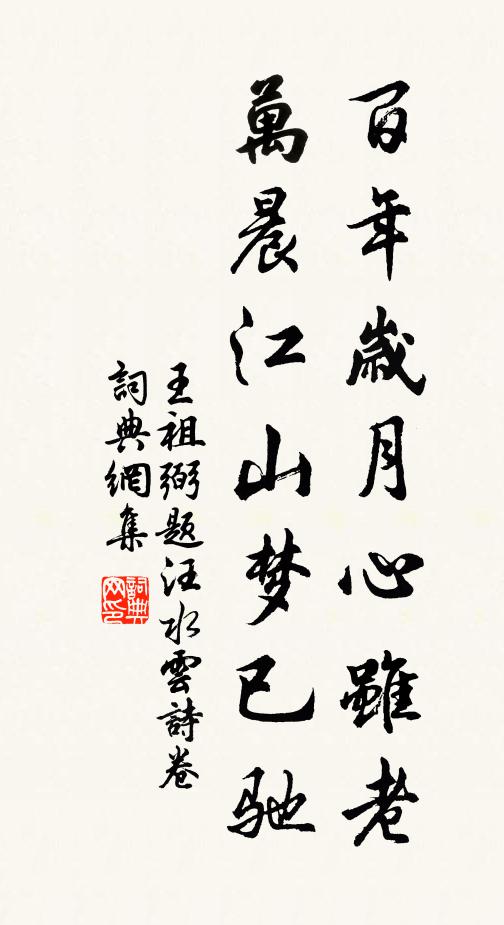 百年歲月心雖老
萬晨江山梦已驰
王祖弼题汪水雲詩卷
詞典網集
詞典网印